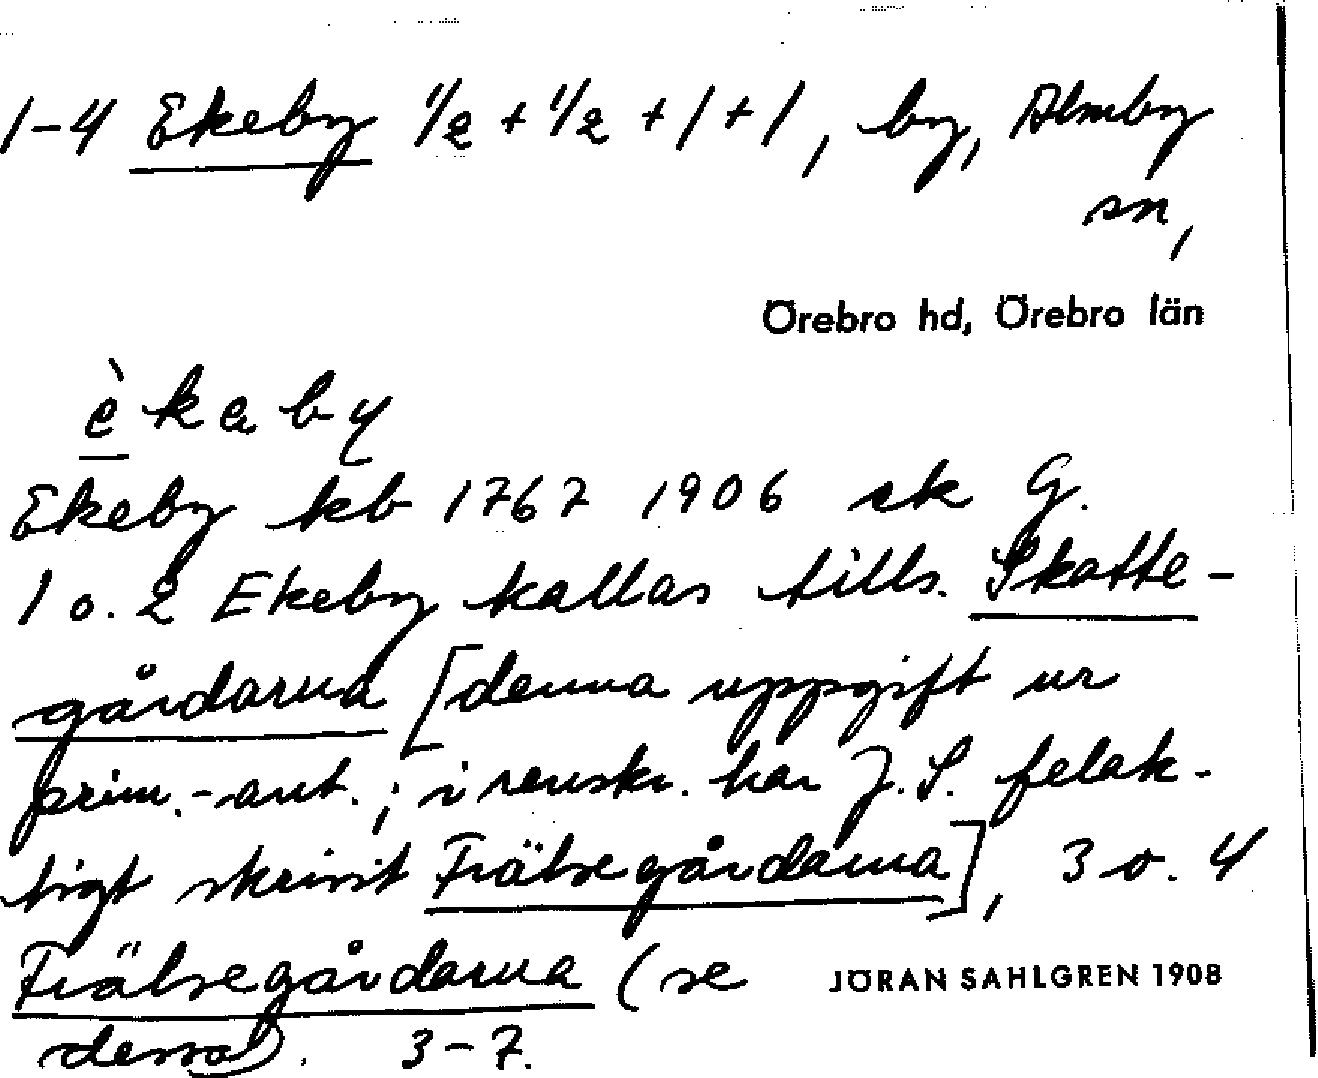 1-4 Ekeby 1/2 + 1/2 + 1 + 1, by, Almby
sn,
Örebro hd, Örebro län
èkaby
Ekeby kb 1767 1906 sk G.
1 o. 2 Ekeby kallas tills. Skatte-
gårdarna [denna uppgift ur
prim.-ant.; i renskr. har J. S. felak-
tigt skrivit Frälsegårdarna], 3 o. 4
Frälsegårdarna (se
dessa). 3-7.
JÖRAN SAHLGREN 1908